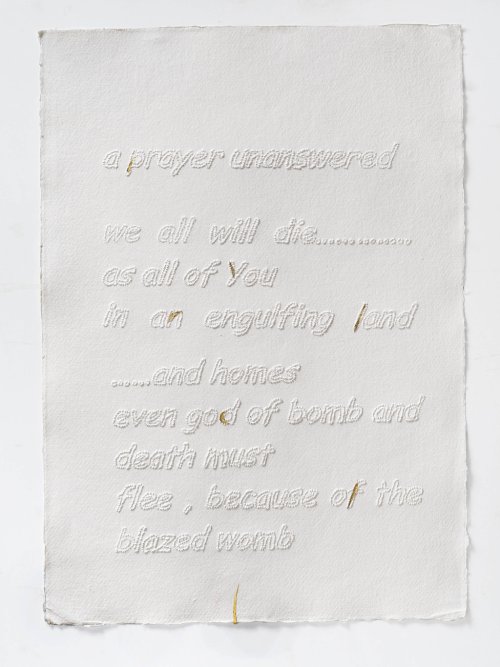 a prayer unanswered
we all will die...............
as all of You
in an engulfing land
......and homes
even god of bomb and
death must
flee , because of the
blazed womb